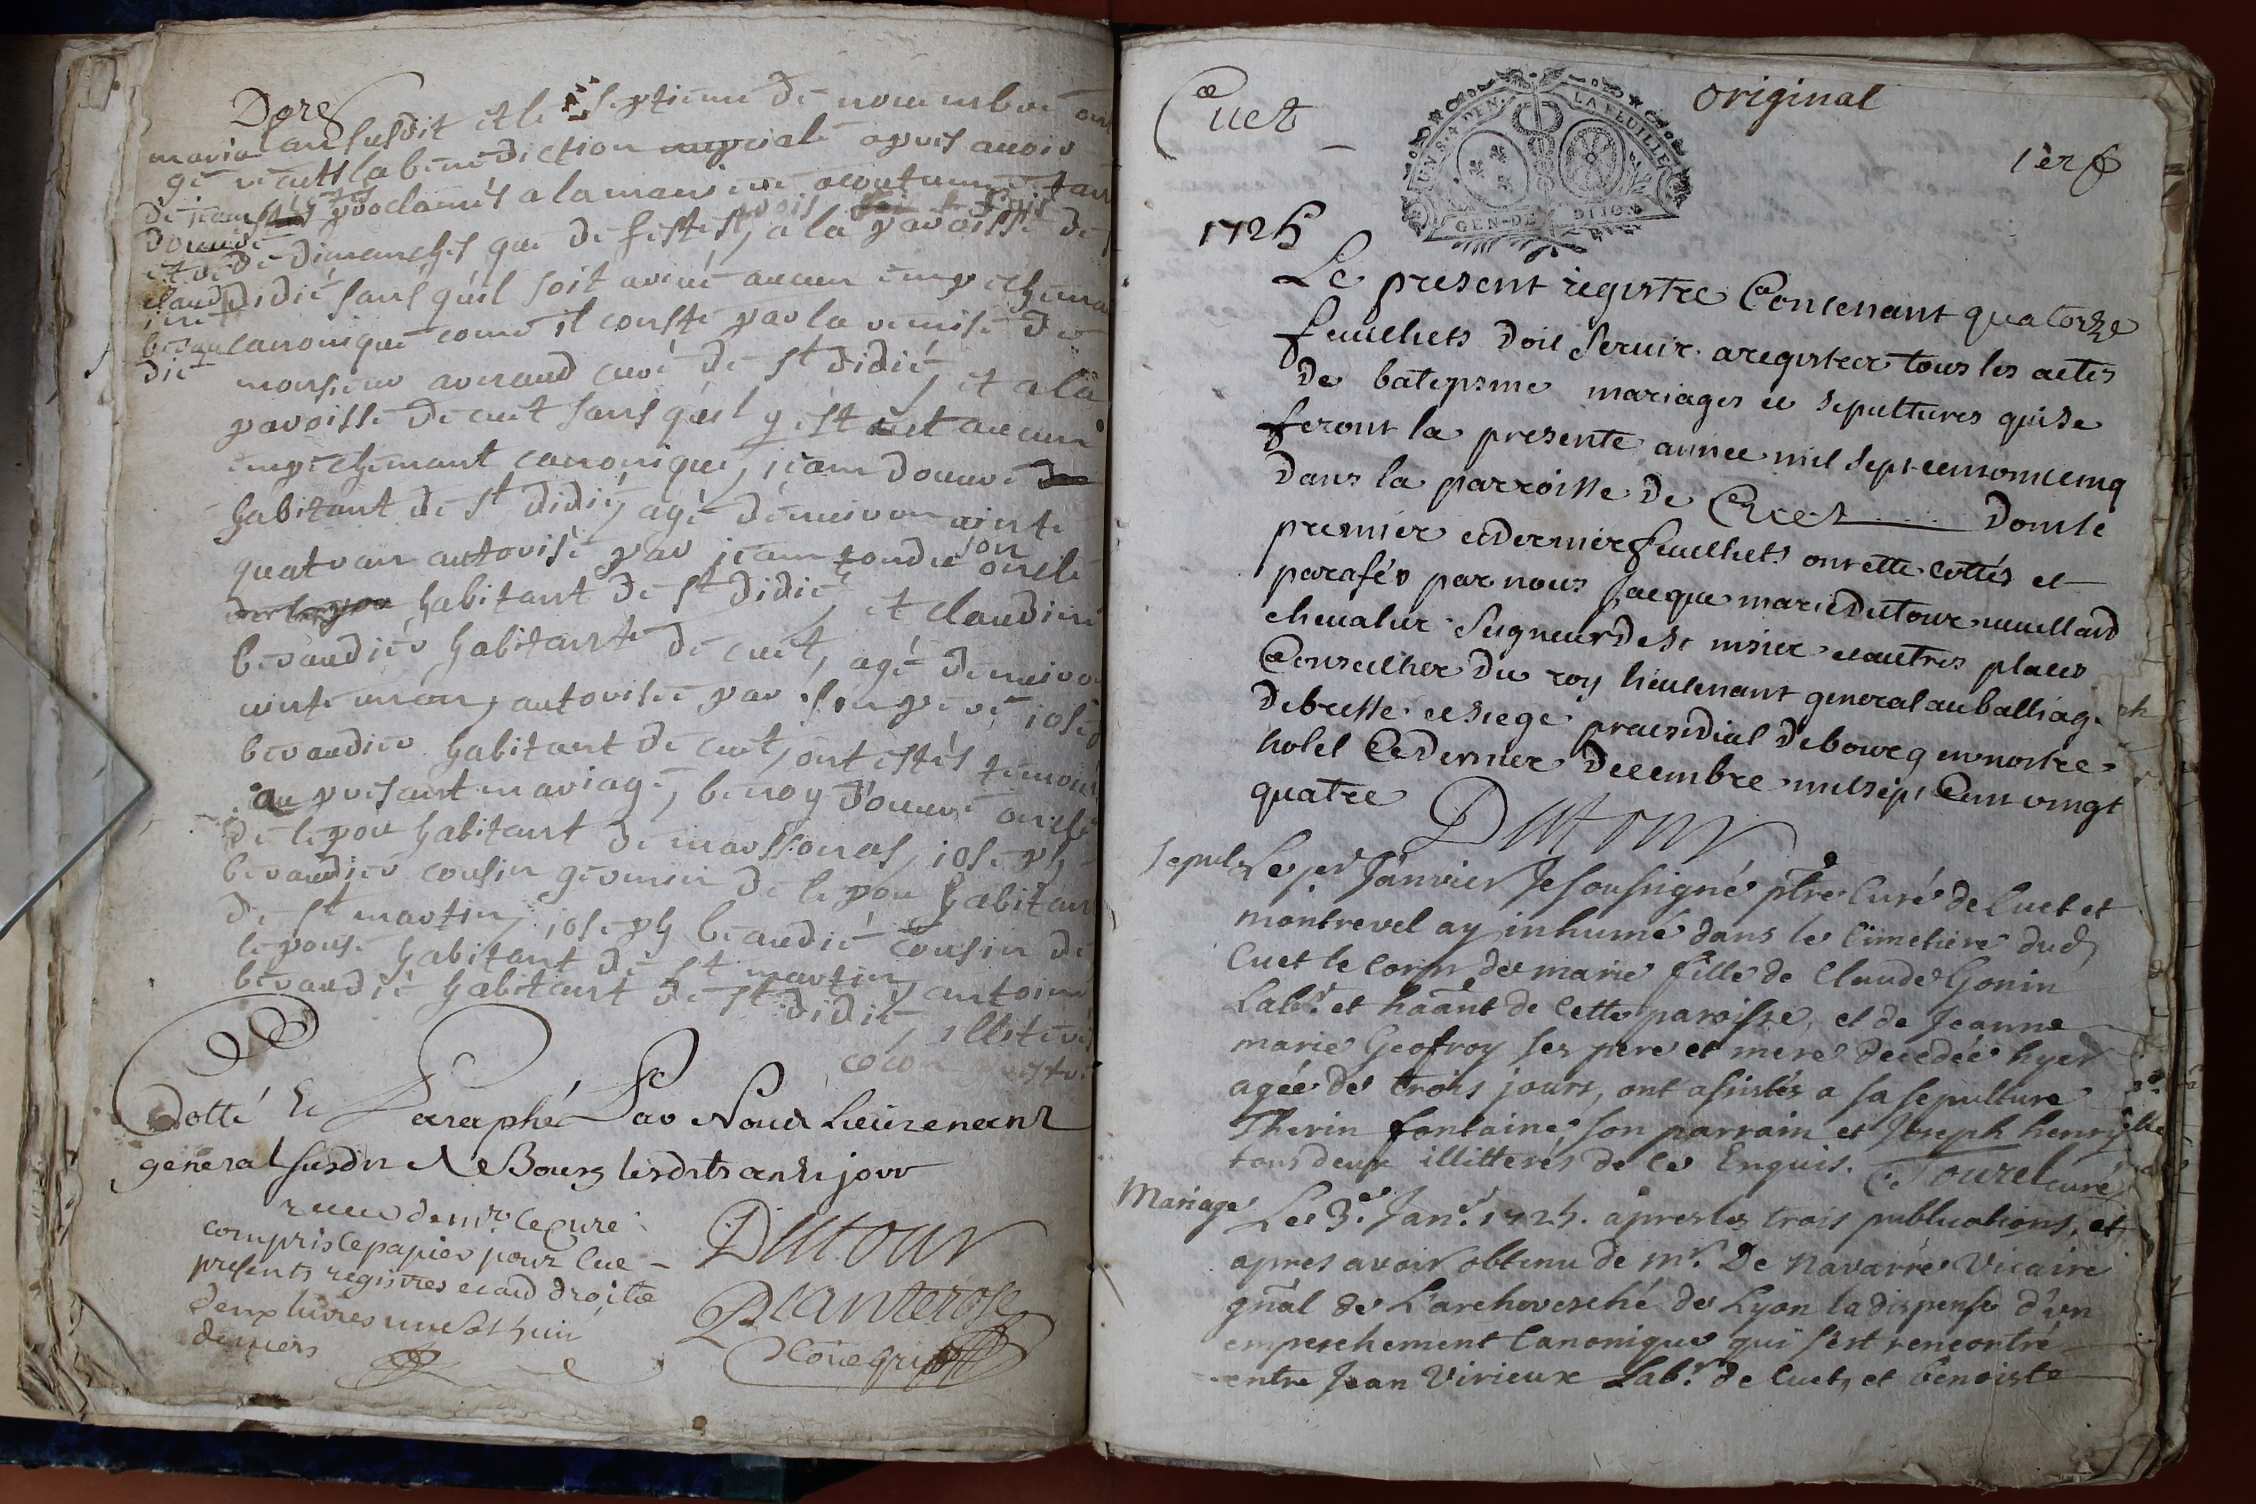 Dores
mariage
de jean
douvré
et de
claudine
beraudié
l'an susdit et le septieme de novembre ont
reçeuts la benediction nuptiale apres avoir
estés proclamés a la maniere acoutumée tant
de dimanches que de festes, a la paroisse de
st didié sans qu'il soit arivé aucun empechement
canonique come il conste par la remise de
monsieur avenaud curé de st didié, et a la
paroisse de cuet sans qu'il y est eut aucun
empechemant canonique, jean douvré
habitant de st didié, agé d'environ vinte
quatr an autorisé par jean tondu son oncle
habitant de st didié, et claudine
beraudier habitante de cuet, agé d'environ
vinte un an, autorisée par son pere joseph
beraudier habitant de cuet, ont estés temoins
au present mariage, benoy douvré oncle
de lepou habitant de marssonas, joseph
beraudier cousin germin de lepou habitant
de st martin, joseph beraudié cousin de
lepouse habitant de st martin, antoine
beraudié habitant de st didié, illiterés
Cotté et Paraphé Par Nous Lieutenant
general susdit A Bourg lesdits an et jour
receu de mr le curé
compris le papier pour les
presents registres et aud droits
deux livres une sol huit
deniers
Dutour
Planterose
Cuet
original
1er f
UN S. 4 DEN. LA FEUILLE
GEN. DE DIJON
1725
Le present registre Contenant quatorze
feuillets doit servir a registrer tous les actes
de batepsme mariages et sepultures qui se
feront la presente annee mil sept cent vint cinq
dans la parroisse de Cuet dont le
premier et dernier feuillets ont ette cottés et
parafés par nous Jacque marie Dutour vuillard
chevalier Seigneur de St nisier et autres places
Conseiller du roy lieutenant general au balliage
de bresse et siege praesidial de bourg en nostre
hotel Ce dernier Decembre mil sept Cent vingt
quatre
Dutour
sepul.
Le per Janvier Je soussigné ptre Curé de Cuet et
montrevel ay inhumé dans le Cimetiere dud
Cuet le corps de marie fille de Claude Gonin
Labr. et haant de cette paroisse, et de Jeanne
marie Geofroy ses pere et mere decedée hyer
agée de trois jours, ont assistés a sa sepulture
Therin fontaine son parrain et Joseph henry
tous deux illitterés de ce Enquis. C Tourel curé
Mariage
Le 3e. Janr. 1725. apres les trois publications, et
apres avoir obtenu de mr. De Navarre Vicaire
gñal de L'archevesché de Lyon la dispense d'un
empeschement Canonique qui s'est rencontré
entre Jean Virieux Labr. de Cuet, et benoiste